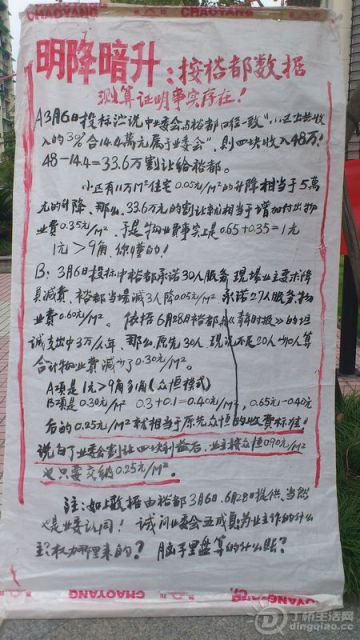 CHAOYANG CHAOYANG CHAOYANG
明降暗升：按裕都数据
测算证明事实存在！
A 3月6日投标论说中业委会与裕都口径一致"小区出共收
入的30%合14.4万元属于业委会"，则四块收入48万！
48-14.4=33.6万割让给裕都。
小区有11万M²住宅0.05元/M²的升降相当于5万
元的升降、那么、33.6万元的割让就相当于增加付出物
业费0.35元/M²、于是物业费事实上是0.65+0.35=1元
1元>9角、你懂的！
B：3月6日投标中裕都承诺30人服务、现场业主要求降
员减费、裕都当场减3人降0.05元/M²、承诺27人服务、物
业费0.60元/M²。依据6月28日裕都 《 时报》的 
诚支出中3万/人年、那么、原先30人、现说不足20人少10人算
合计物业费减少了0.30元/M²。
A项是1元>9角多1角(众恒模式)
B项是0.30元/M² 0.3+0.1=0.40元/M²，0.65元-0.40元
后的0.25元/M²就相当于原先众恒的收费标准！
说白了业委会割让四块利益后、业主按众恒0.90元/M²
也只要交纳0.25元/M²。
注：如上数据由裕都3月6日、6月28日提供、当然
也是业委认同！试问业委会五成员为业主作的什么
主？权力哪里来的？脑子里盘算的什么账？
CHAOYANG CHAOYANG
丁桥生活网
dingqiao.cc